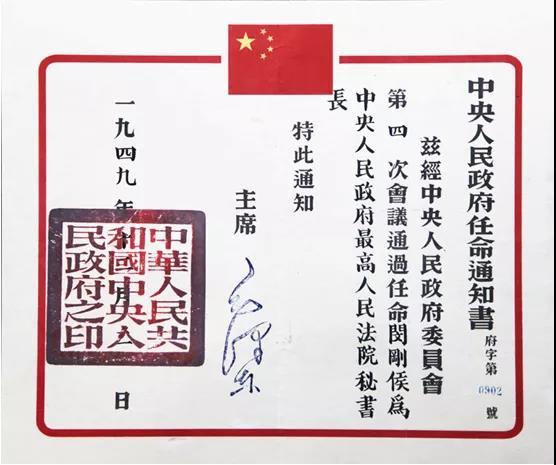 中央人民政府任命通知書
府字第 0902 號
茲經中央人民政府委員會
第四次會議通過任命閔剛侯爲
中央人民政府最高人民法院秘書
長
特此通知
主席 毛澤東
一九四九年 月 日
中華人民共
和國中央人
民政府之印